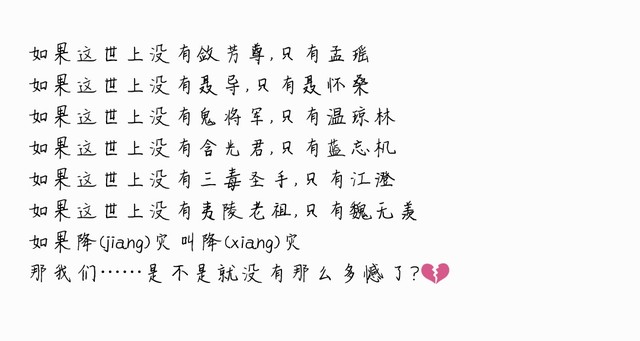 如果这世上没有敛芳尊,只有孟瑶
如果这世上没有聂导,只有聂怀桑
如果这世上没有鬼将军,只有温琼林
如果这世上没有含光君,只有蓝忘机
如果这世上没有三毒圣手,只有江澄
如果这世上没有夷陵老祖,只有魏无羡
如果降(jiang)灾叫降(xiang)灾
那我们……是不是就没有那么多憾了?💔